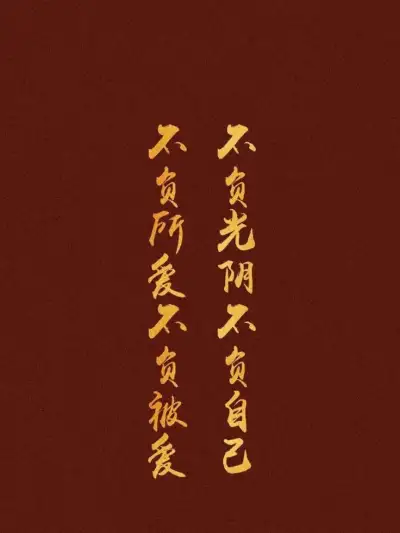 不负光阴不负自己
不负所爱不负被爱